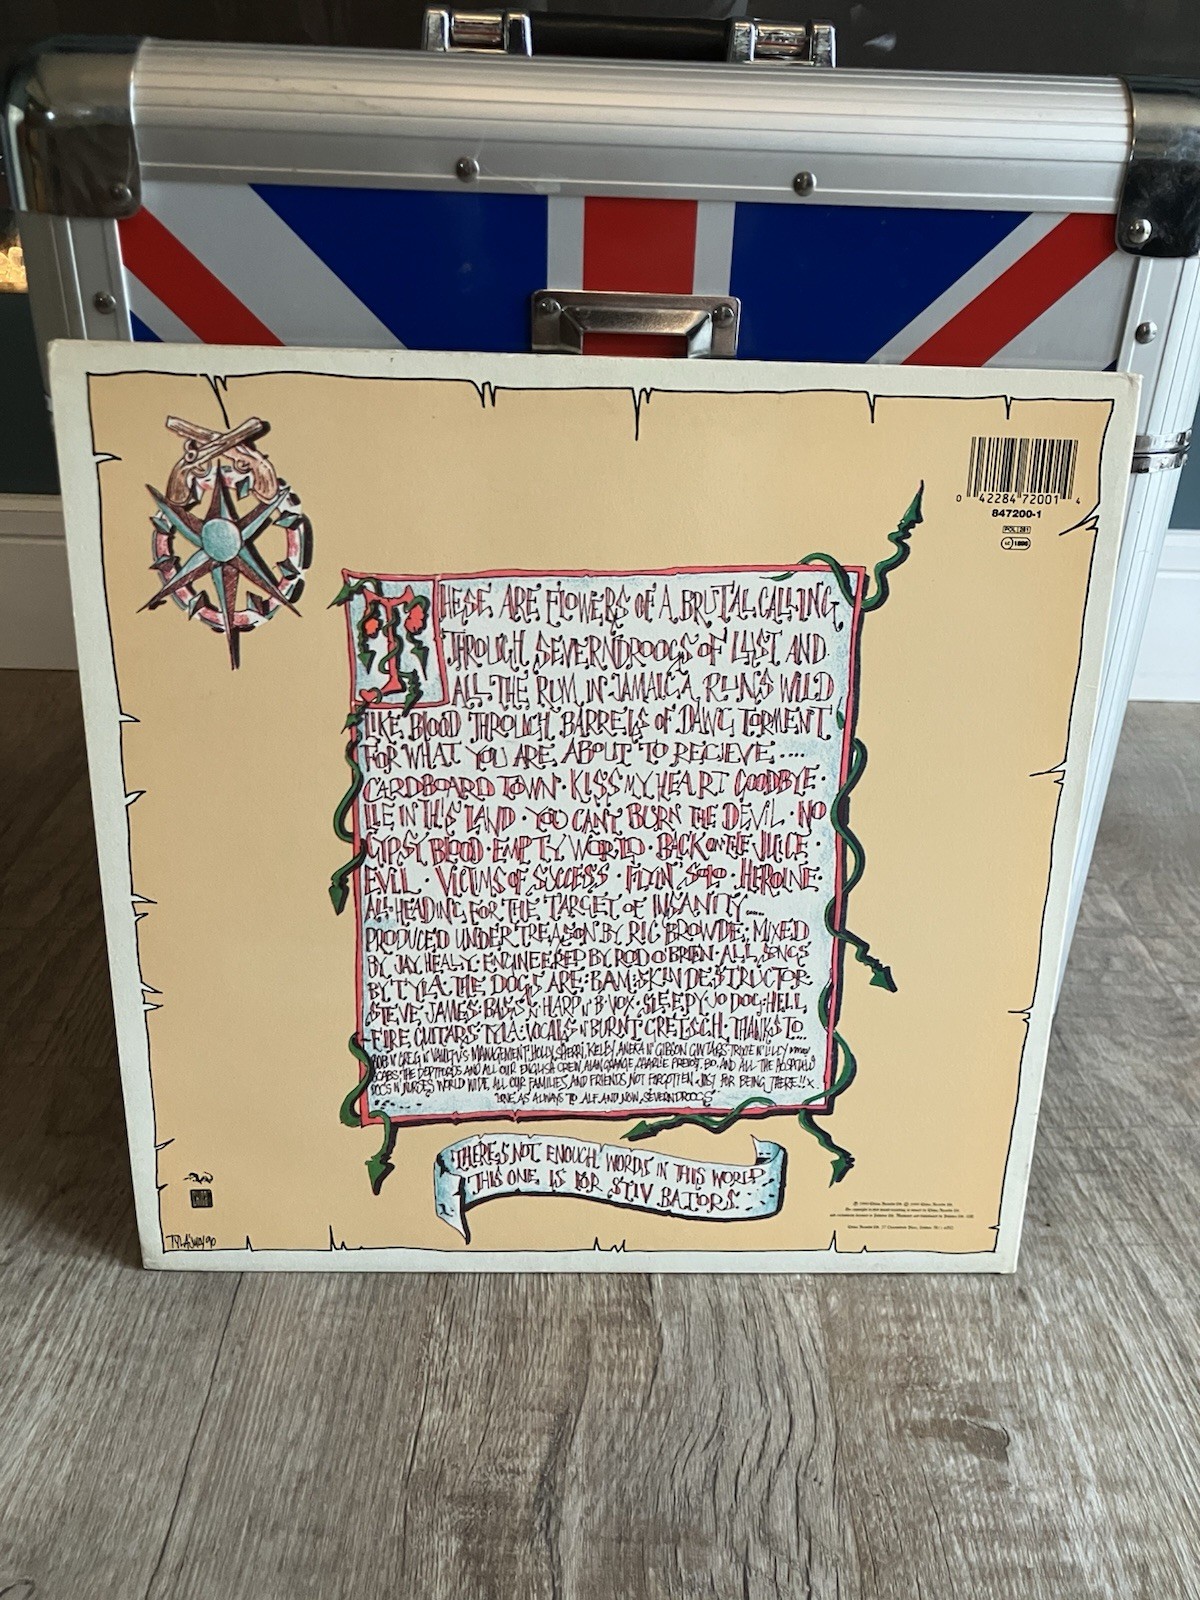 0 42284 72001 4
847200-1
THESE ARE FLOWERS OF A BRUTAL CALLING
THROUGH SEVERNDROOGS OF LUST AND
ALL THE RUM IN JAMAICA RUNS WILD
LIKE BLOOD THROUGH BARRELS OF DAWG TORMENT
FOR WHAT YOU ARE ABOUT TO RECIEVE....
CARDBOARD TOWN · KISS MY HEART GOODBYE ·
LIE IN THIS LAND · YOU CAN'T BURN THE DEVIL · NO
GYPSY BLOOD · EMPTY WORLD · BACK ON THE JUICE ·
EVIL · VICTIMS OF SUCCESS · FLYIN' SOLO · HEROINE ·
ALL HEADING FOR THE TARGET OF INSANITY.....
PRODUCED UNDER TREASON BY RIC BROWDE; MIXED
BY JAY HEALY · ENGINEERED BY ROD O'BRIEN · ALL SONGS
BY TYLA · THE DOGS ARE · BAM: SKIN DESTRUCTOR
STEVE JAMES: BASS N' HARP N' B·VOX · SLEEPY JO DOG: HELL
FIRE GUITARS TYLA: VOCALS N' BURNT GRETSCH · THANKS TO...
MANAGEMENT HOLLY, SHERRI, KELLY, N' GIBSON GUITARS
AND ALL OUR ENGLISH CREW, ALAN GRANGE, CHARLIE BO, AND ALL THE
DOCS N' NURSES WORLD WIDE, ALL OUR FAMILIES, AND FRIENDS NOT FORGOTTEN JUST FOR BEING THERE!! X
LOVE AS ALWAYS TO ALF AND NOW, SEVERNDROOGS
THERE'S NOT ENOUGH WORDS IN THIS WORLD
THIS ONE IS FOR STIV BATORS.